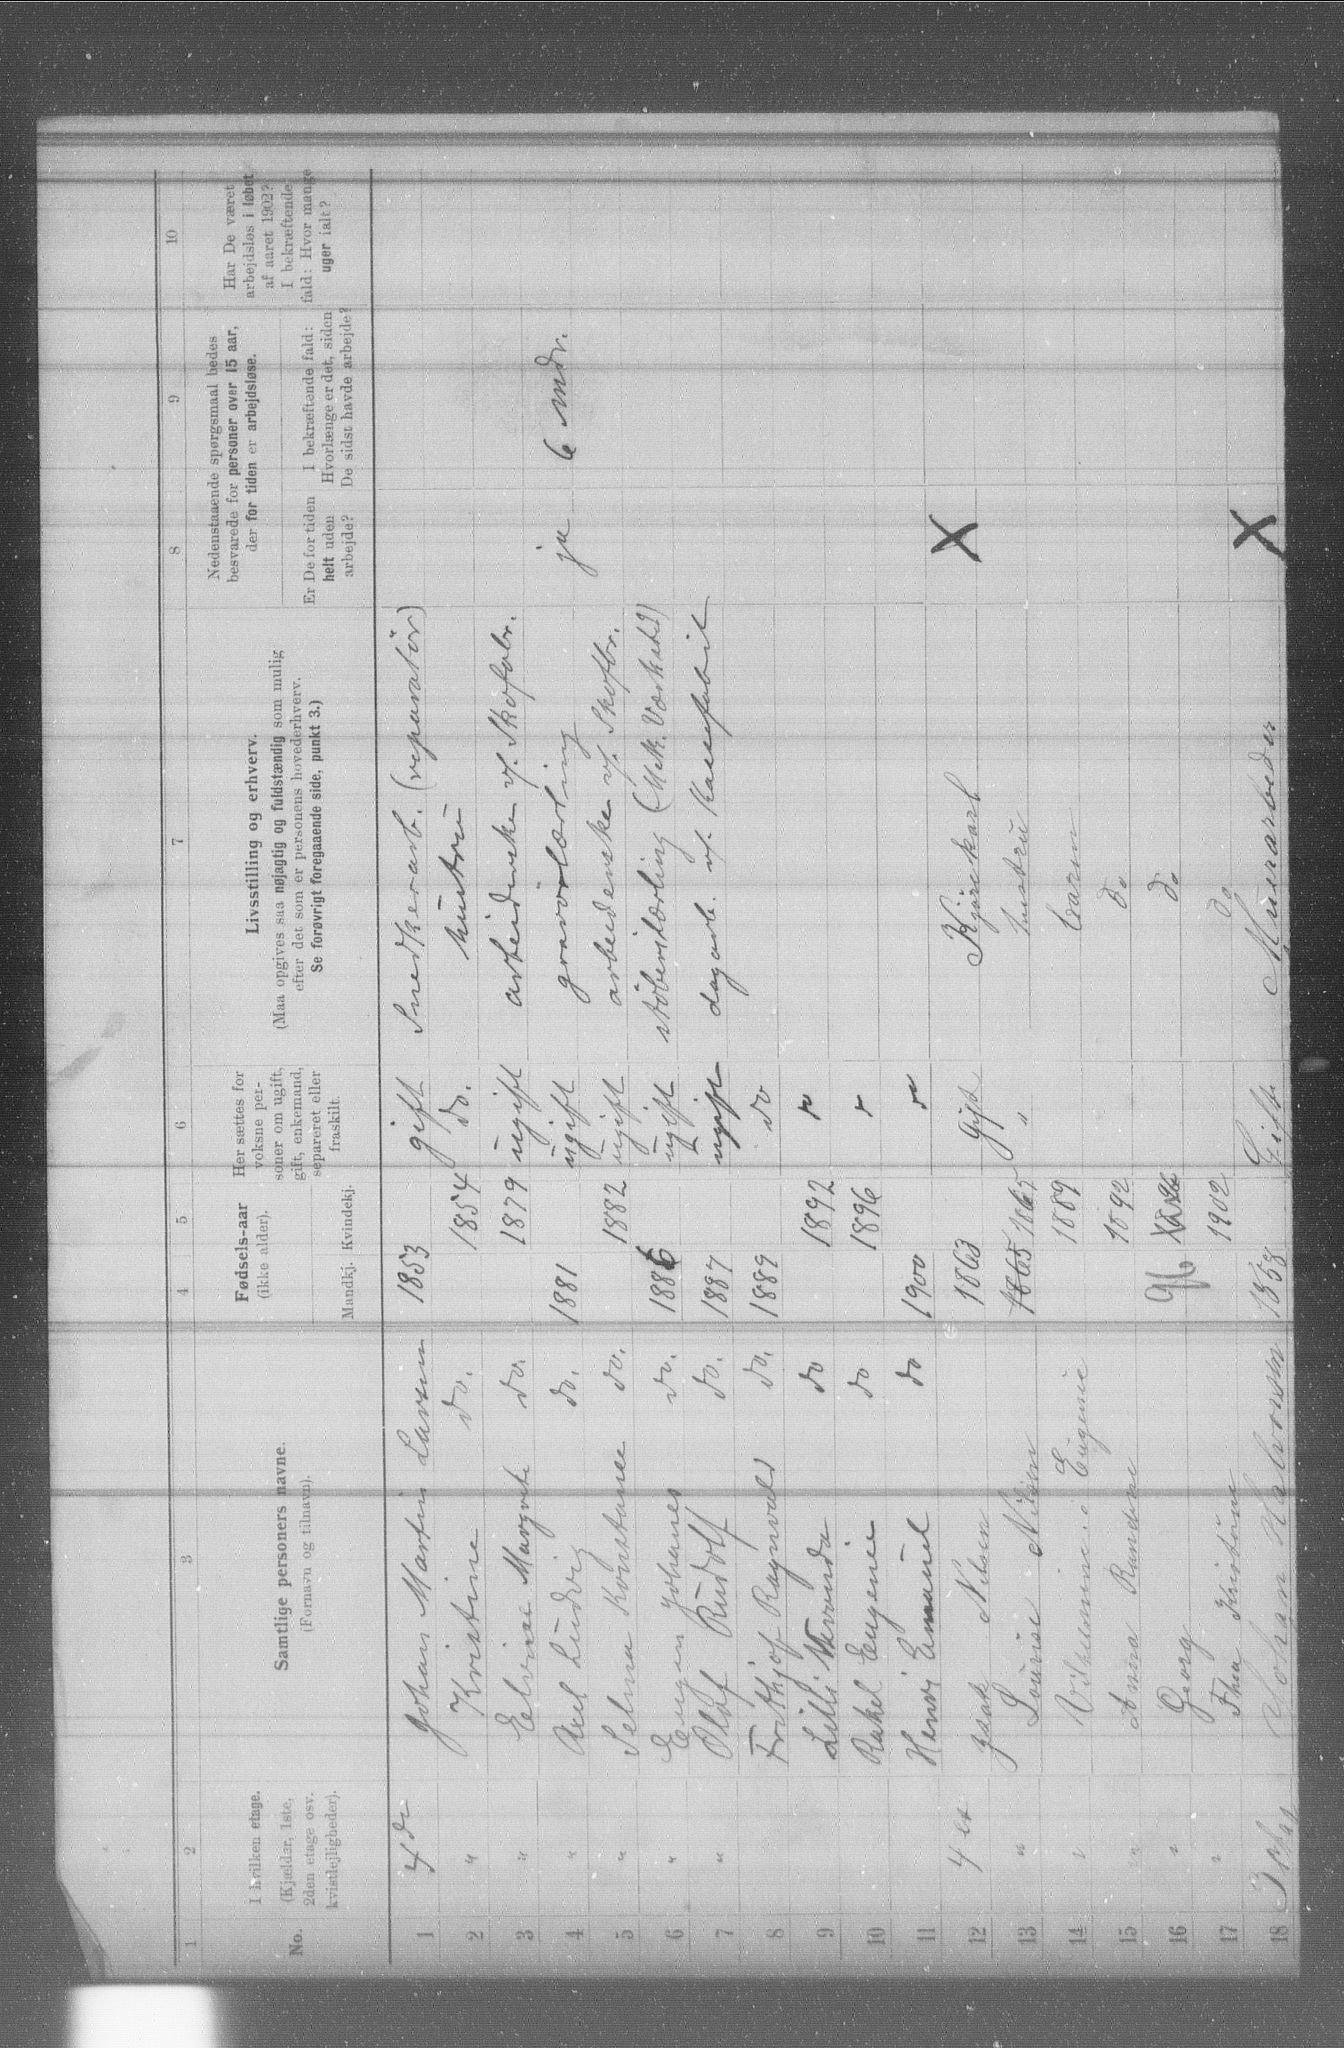 1 2 3 4 5 6 7 8 9 10
No.
I hvilken etage.
(Kjælder, 1ste,
2den etage osv.
kvistlejligheder).
Samtlige personers navne.
(Fornavn og tilnavn).
Fødsels-aar
(ikke alder).
Mandkj. Kvindekj.
Her sættes for
voksne per-
soner om ugift,
gift, enkemand,
separeret eller
fraskilt.
Livsstilling og erhverv.
(Maa opgives saa nøjagtig og fuldstændig som mulig
efter det som er personens hovederhverv.
Se forøvrigt foregaaende side, punkt 3.)
Nedenstaaende spørgsmaal bedes
besvarede for personer over 15 aar,
der for tiden er arbejdsløse.
Er De for tiden
helt uden
arbejde?
I bekræftende fald:
Hvorlænge er det, siden
De sidst havde arbejde?
Har De været
arbejdsløs i løbet
af aaret 1902?
I bekræftende
fald: Hvor mange
uger ialt?
1 4de Johan Martin Larsen 1853 gift Snedkerarb. (reparatör)
2 " Kristine do. 1854 do. hustru
3 " Elvine Margrete do. 1879 ugift arbeiderske v/. Skofabr.
4 " Axel Ludvig do. 1881 ugift gravörlærling ja 6 mdr.
5 " Selma Konstance do. 1882 ugift arbeiderske v/. Skofbr.
6 " Eugen Johanes do. 1886 ugift stöberilærling (Mek. Værksted)
7 " Olaf Rudolf do. 1887 ugift dagarb. v/.
8 Frithjof Ragnvald do. 1889 do
9 Lilli do 1892 "
10 Rakel Eugenie do 1896 "
11 Henri Emanuel do 1900 "
12 4 et Isak Nilsen 1863 Gift Kjörekarl X
13 " Lourise Nilsen 1865 1865 " hustru
14 " Vilhelmine Eugenie 1889 barn
15 " Anna Randine 1892 do
16 " Georg 96 do
17 " Thea Kristine 1902 do
18 3 Johan Halvorsen 1858 Gift Murarbeder X